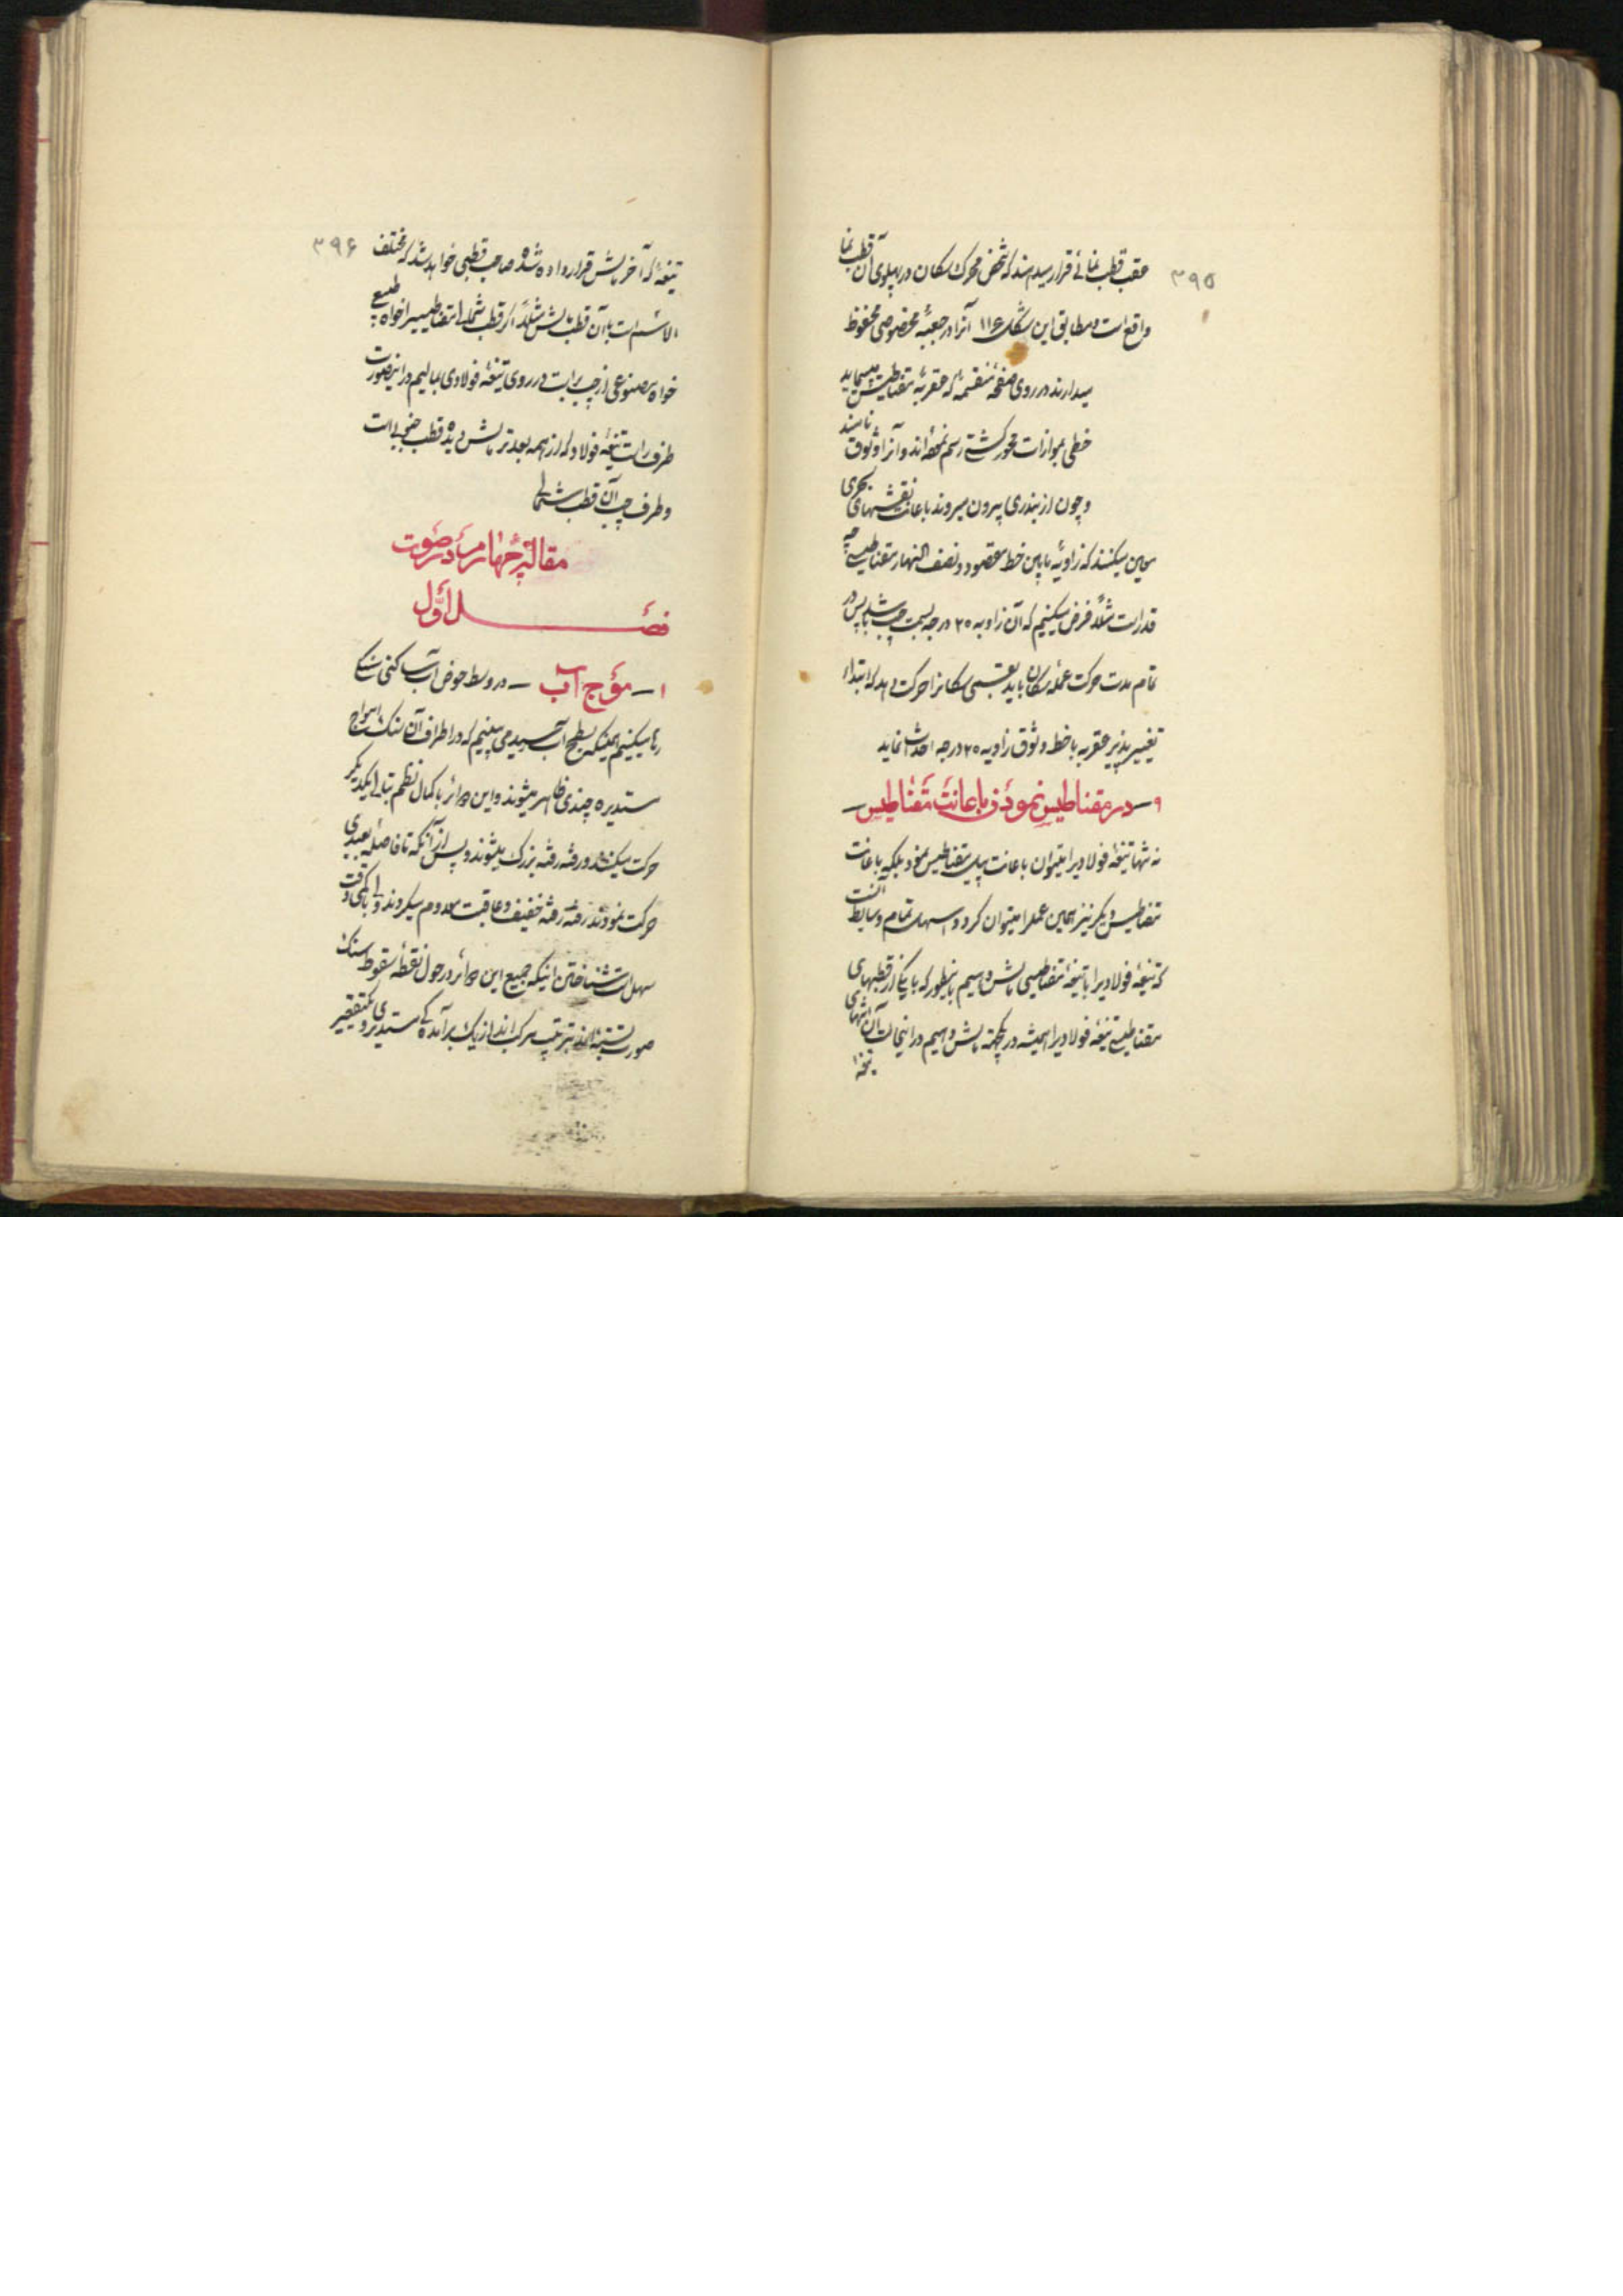 ۳۹۵
عقب قطب نمائی قرار میدهند که شخص محرک سکان در پهلوی آن قطب نما
واقع است و مطابق این شکل ۱۱۶ آنرا در جعبهٔ مخصوصی محفوظ
میدارند در روی صفحهٔ منقسمه که عقربهٔ مقناطیس میپیماید
خطی بموازات محور کشتی رسم نموده‌اند و آنرا وثوق نامند
و چون از بندری بیرون میروند باعانت نقشهای بحری
معین میکنند که زاویهٔ مابین خط مقصود و نصف النهار مقناطیسی چه
قدر است مثلاً فرض میکنیم که آن زاویه ۲۵ درجه بسمت چپ باشد پس در
تمام مدت حرکت عملهٔ سکان باید بقسمی سکانرا حرکت دهد که ابتداء
تغییر پذیر عقربه با خط وثوق زاویه ۲۵ درجه احداث نماید
۹ – در مقناطیس نمودن باعانت مقناطیس –
نه تنها تیغهٔ فولادیرا میتوان باعانت پیل مقناطیس نمود بلکه باعانت
مقناطیس دیگر نیز همین عملرا میتوان کرد و اسهل تمام وسایط آنست
که تیغهٔ فولادیرا با تیغهٔ مقناطیسی مالش دهیم باینطور که با یکی از قطبهای
مقناطیسی تیغهٔ فولادیرا همیشه در یکجهة مالش دهیم در اینحالت آن انتهای
تیغهٔ
۳۹۶
تیغهٔ که آخر مالش قرار داده شده صاحب قطبی خواهد شد که مختلف
الاسم است با آن قطب مالش مثلاً اگر قطب شمالی مقناطیسیرا خواه طبیعی
خواه مصنوعی از چپ براست در روی تیغهٔ فولادی بمالیم در اینصورت
طرف راست تیغهٔ فولاد که از همه بعدتر مالش دیده قطب جنوبی است
و طرف چپ آن قطب شمالی
مقالهٔ چهارم در صوت
فصل اول
۱ – موج آب – در وسط حوض آب ساکنی سنگی
رها میکنیم همینکه بسطح آب رسید می بینیم که در اطراف آن سنگ امواج
مستدیره چندی ظاهر میشوند و این دوائر با کمال نظم تبالی یکدیگر
حرکت میکنند و رفته رفته بزرگ میشوند و پس از آنکه تا فاصلهٔ بعیدی
حرکت نمودند رفته رفته خفیف و عاقبت معدوم میگردند ولی با کمی دقت
سهل است شناختن اینکه جمیع این دوائر در حول نقطهٔ سقوط سنگ
صورت بسته اند بترتیب مرکب اند از یک برآمدهٔ مستدیر و یک تقعیر